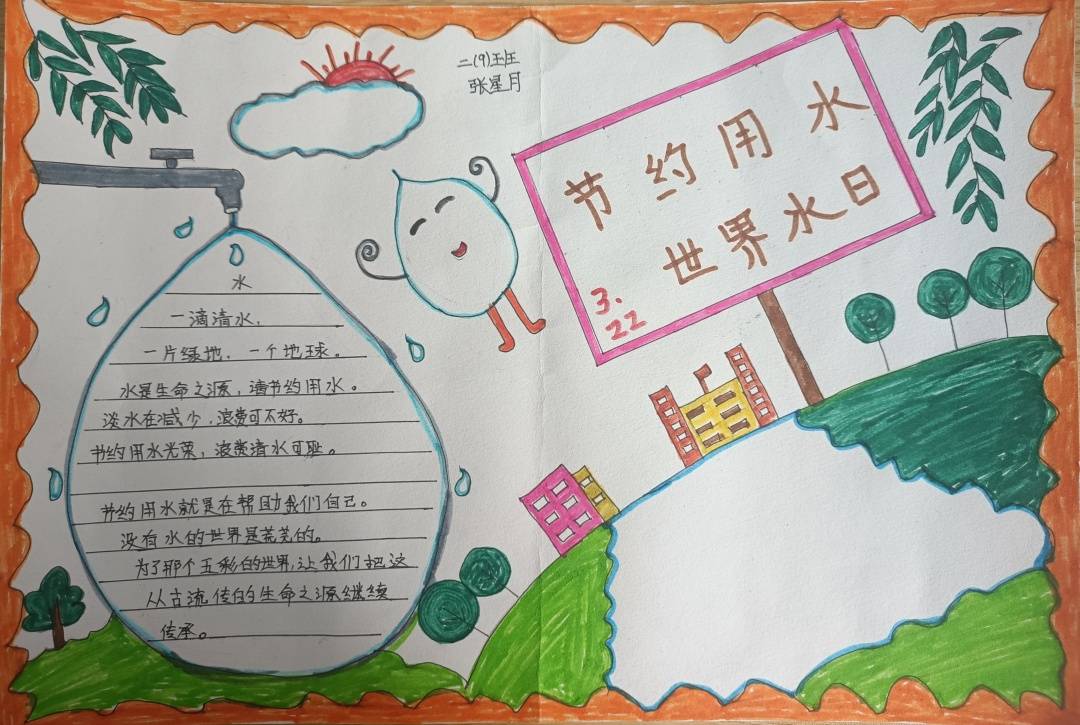 二(9)班
张星月
节约用水
世界水日
3.
22
水
一滴清水,
一片绿地、一个地球。
水是生命之源,请节约用水。
淡水在减少,浪费可不好。
节约用水光荣,浪费清水可耻。
节约用水就是在帮助我们自己。
没有水的世界是荒芜的。
为了那个五彩的世界,让我们把这
从古流传的生命之源继续
传承。